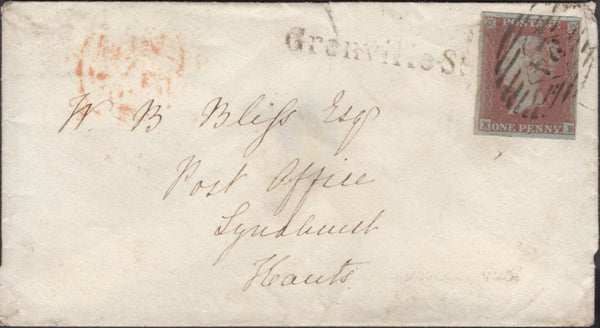 Grenville St
POSTAGE
K ONE PENNY B
W. B. Bliss Esq
Post Office
Lyndhurst
Hants